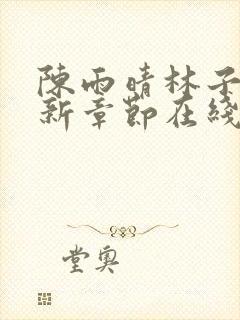 陳雨晴林子
新章節在綫
堂奧